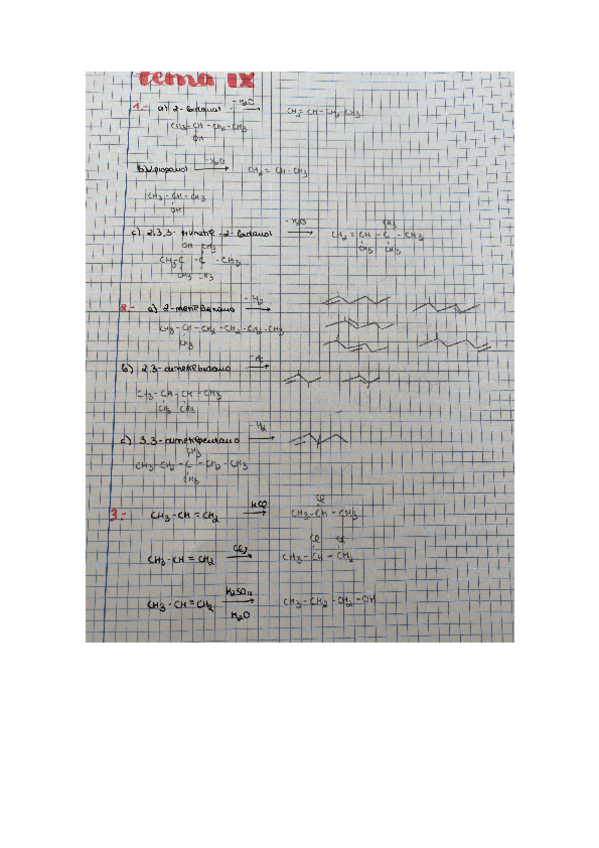 Tema IX
1.- a) 2-butanol -H2O → CH2=CH-CH2-CH3
CH3-CH-CH2-CH3
OH
b) 2-propanol -H2O → CH2=CH-CH3
CH3-CH-CH3
OH
c) 2,3,3-trimetil-2-butanol -H2O → CH2=CH-C-CH3
CH3
CH3 CH3
OH CH3
CH3-C-C-CH3
CH3 CH3
2.- a) 2-metilhexano -H2 →
CH3-CH-CH2-CH2-CH2-CH3
CH3
b) 2,3-dimetilbutano -H2 →
CH3-CH-CH-CH3
CH3 CH3
c) 3,3-dimetilpentano -H2 →
CH3
CH3-CH2-C-CH2-CH3
CH3
3.- CH3-CH=CH2 HCl → CH3-CH-CH3
Cl
CH3-CH=CH2 Cl2 → CH3-CH-CH2
Cl Cl
CH3-CH=CH2 H2SO4 → CH3-CH2-CH2-OH
H2O